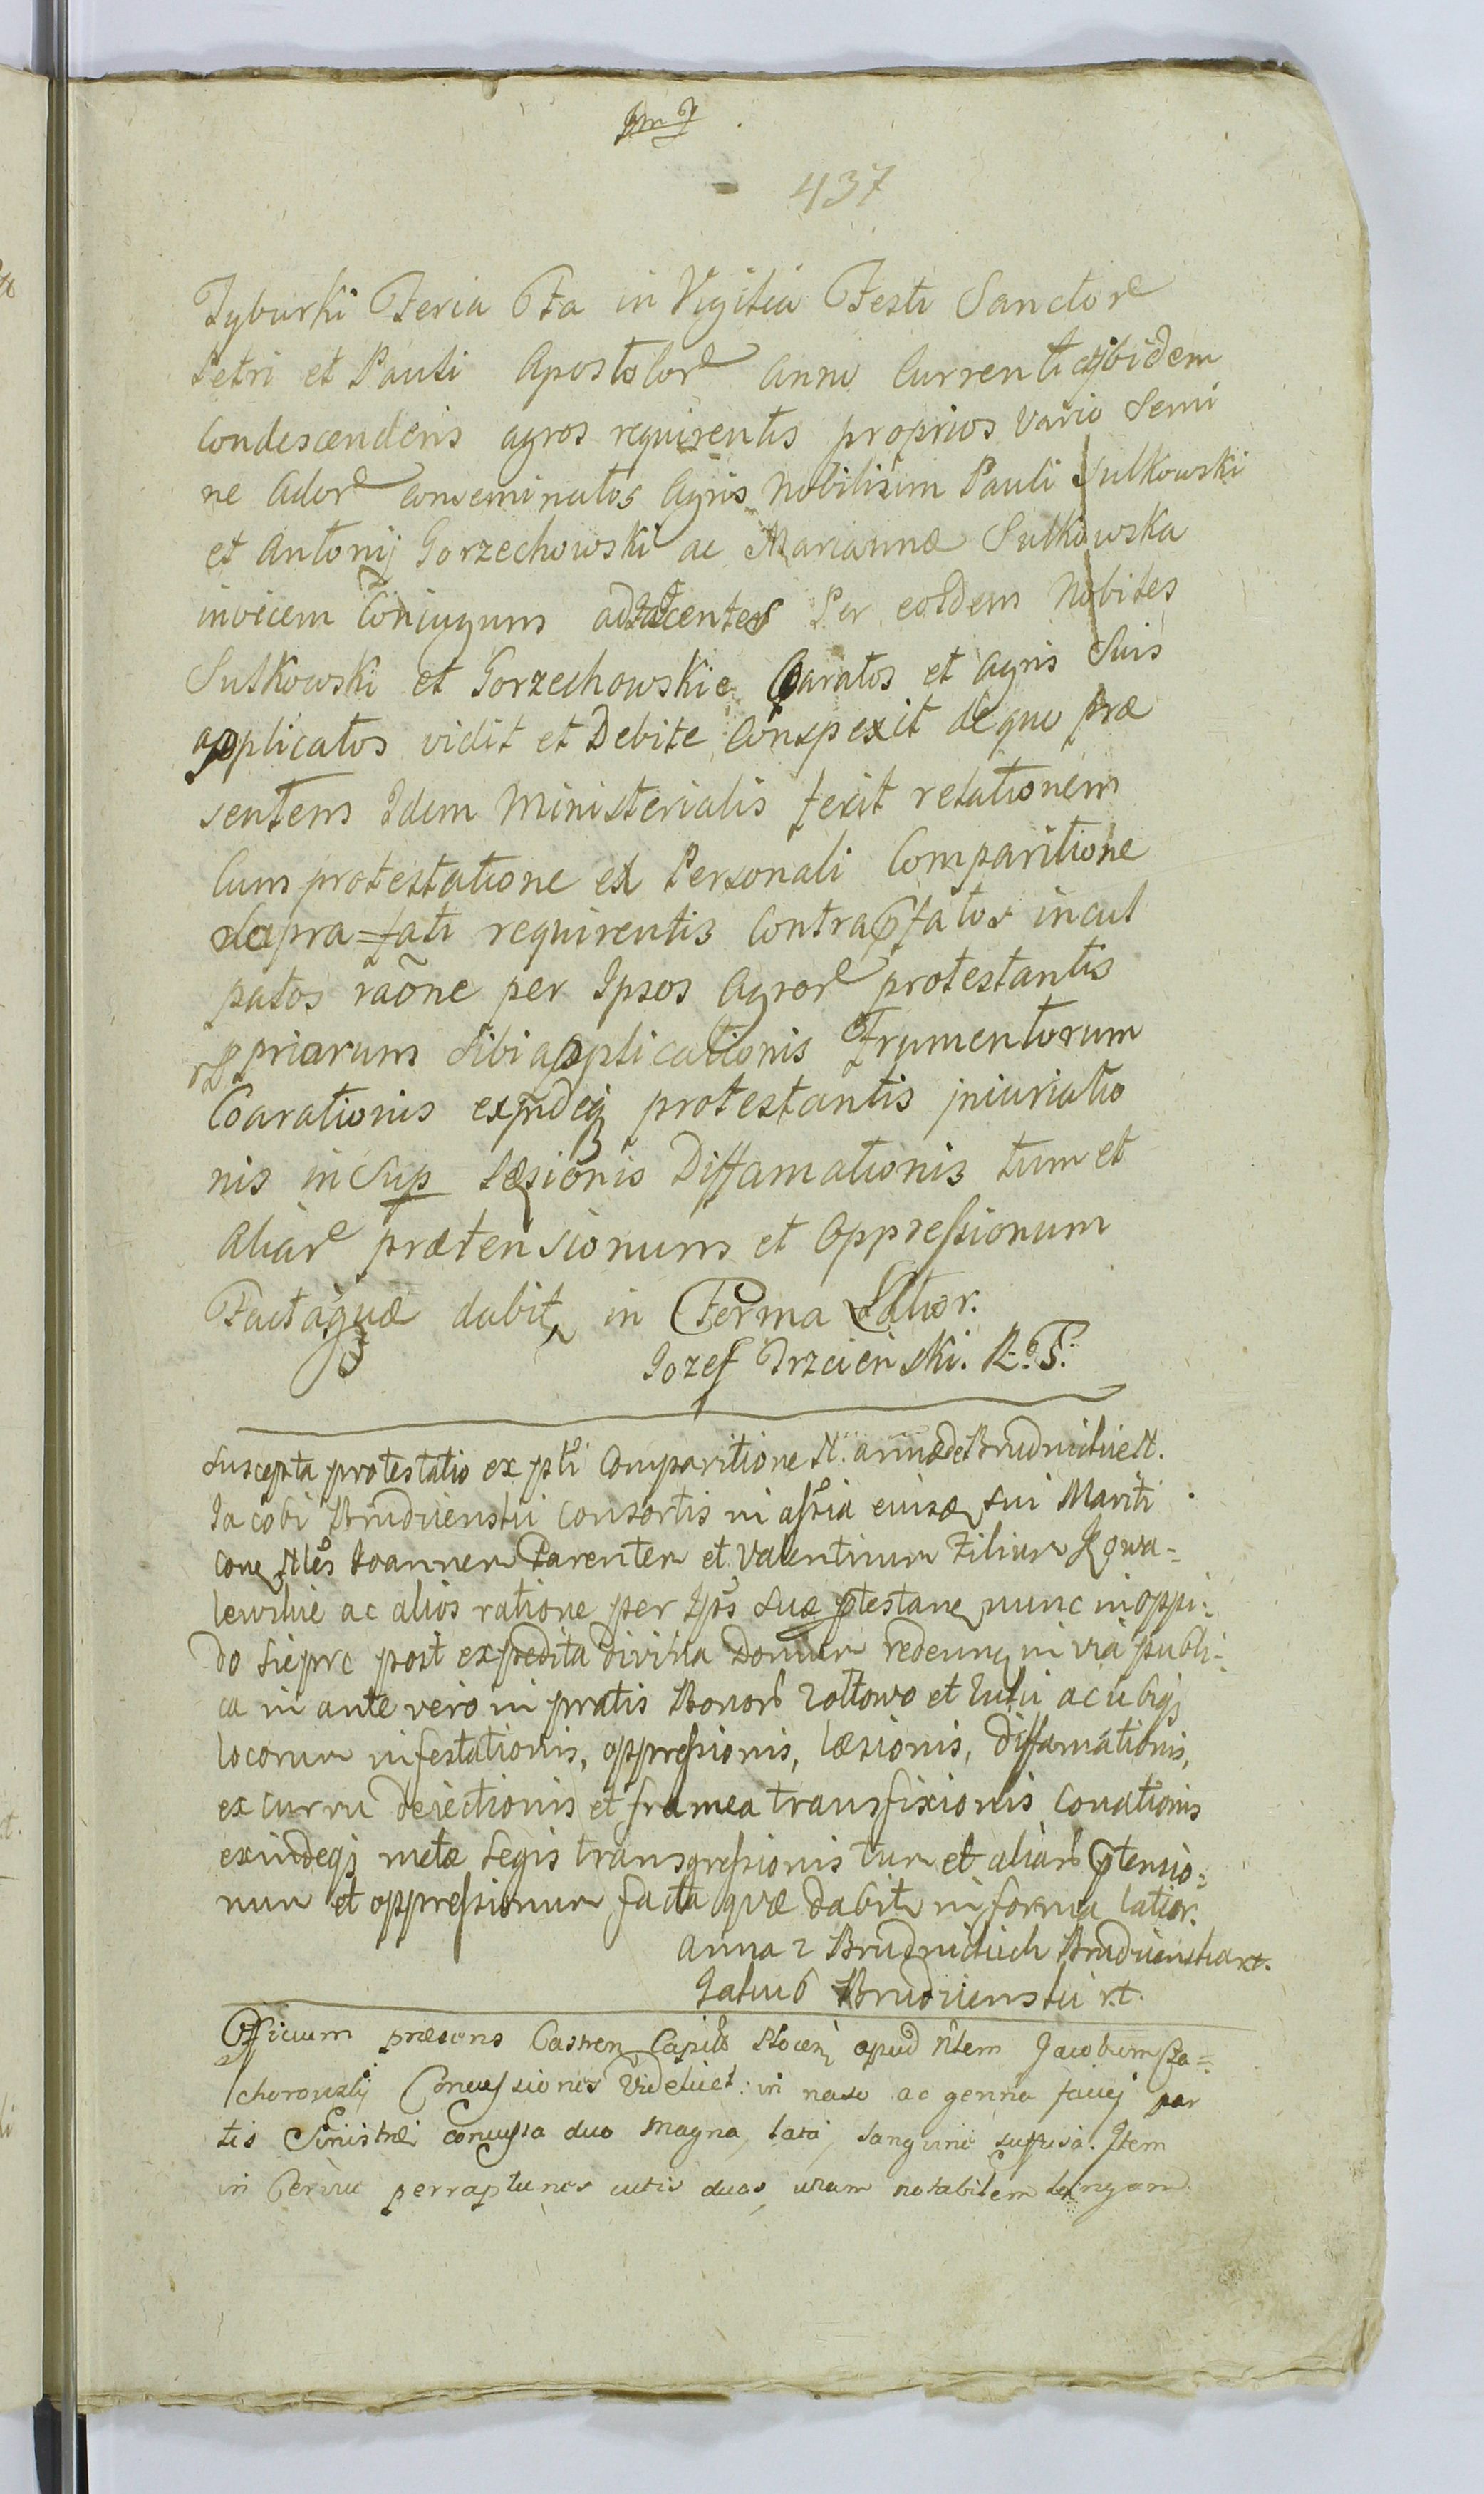 437
Tyburki Feria 5ta in Vigilia Festi Sanctor
Petri et Pauli Apostolor Anni Currentis ibidem
Condescendens agros requirentis proprios vario Semi
ne Ador conseminatos Agris Nobilium Pauli Sulkowski
et Antonij Gorzechowski ac Mariannæ Sulkowska
invicem Coniugum adjacentes Per eosdem Nobiles
Sulkowski et Gorzechowskie Coaratos et agris Suis
applicatos vidit et Debite Conspexit de quo præ
sentem Idem Ministerialis fecit relationem
Cum protestatione ex Personali Comparitione
præ=fati requirentis Contra pfatos incul
patos raōne per Ipsos Agror protestantis
ppriarum Sibi applicationis Frumentorum
Coarationis exindeq protestantis iniuriatio
nis in Sup Læsionis Diffamationis tum et
Aliar prætensionum et Oppressionum
Factaquæ dabit in Forma Latior.
Jozef Trzcienski. R. T.
Suscepta protestatio ex psli Comparitione N. Annæ de Brudnickie N.
Jacobi Brudzienski Consortis in asstia eiusæ sui Mariti
Nles Joannem Parentem et Valentinum Filium
lewskie ac alios ratione per Ips Suæ ptestane nunc in oppi=
do Sieprc post expedita divina Domum redeun in via publi=
ca in ante vero in pratis Bonor Zoltowo et ac ubiq
locorum infestationis, oppressionis, læsionis, diffamationis,
ex curru deiectionis et framea transfixionis Conationis
exindeq metæ Legis transgressionis tum et aliar ptensio=
num et oppressionum facta quæ dabit in forma latior.
Anna z Brudnickich Brudzienska
Jakub Brudzienski
Officium præsens Castren Capitle Plocen apud Nlem Jacobum
chorowski Concussiones Videlicet: in naso ac genna faciej par
tis Sinistræ concussa duo magna, lata, sanguine suffusa. Item
in Cervice perraptiones cutis duas, unam notabilem longam